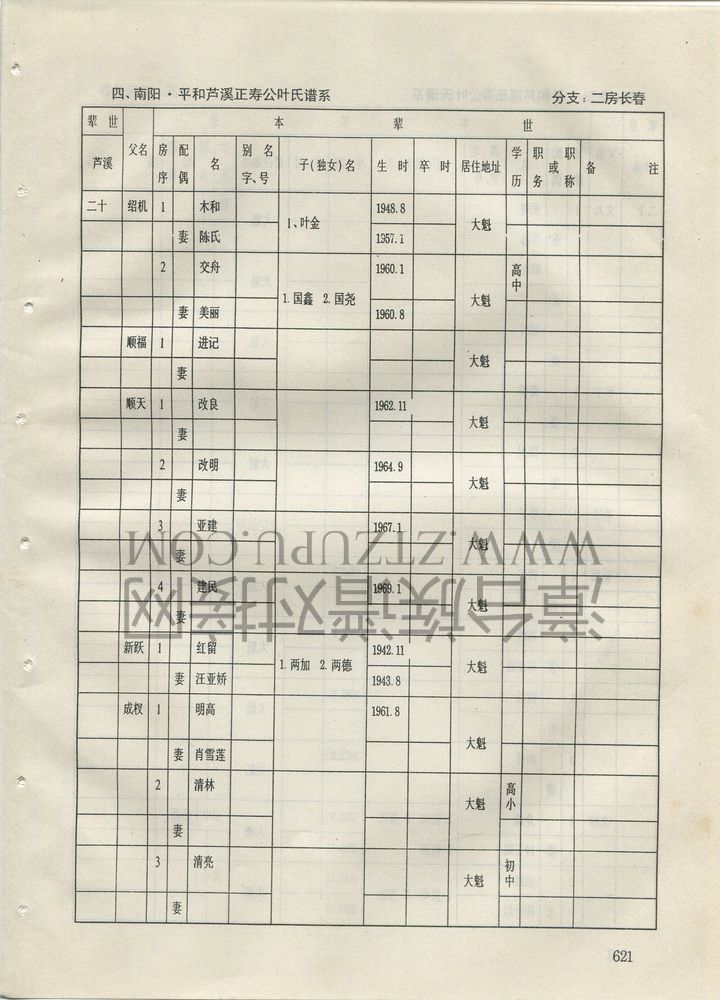 四、南阳·平和芦溪正寿公叶氏谱系 分支：二房长春
辈世 父名 本辈世
芦溪 房序 配偶 名 别名字、号 子(独女)名 生时 卒时 居住地址 学历 职务或职称 备注
二十 绍机 1 木和 1、叶金 1948.8 大魁
妻 陈氏 1957.1
2 交舟 1.国鑫 2.国尧 1960.1 大魁 高中
妻 美丽 1960.8
顺福 1 进记 大魁
妻
顺天 1 改良 1962.11 大魁
妻
2 改明 1964.9 大魁
妻
3 亚建 1967.1 大魁
妻
4 建民 1969.1 大魁
妻
新跃 1 红留 1.两加 2.两德 1942.11 大魁
妻 汪亚娇 1943.8
成权 1 明高 1961.8 大魁
妻 肖雪莲
2 清林 大魁 高小
妻
3 清亮 大魁 初中
妻
621
WWW.ZTZUPU.COM
漳台族谱对接网